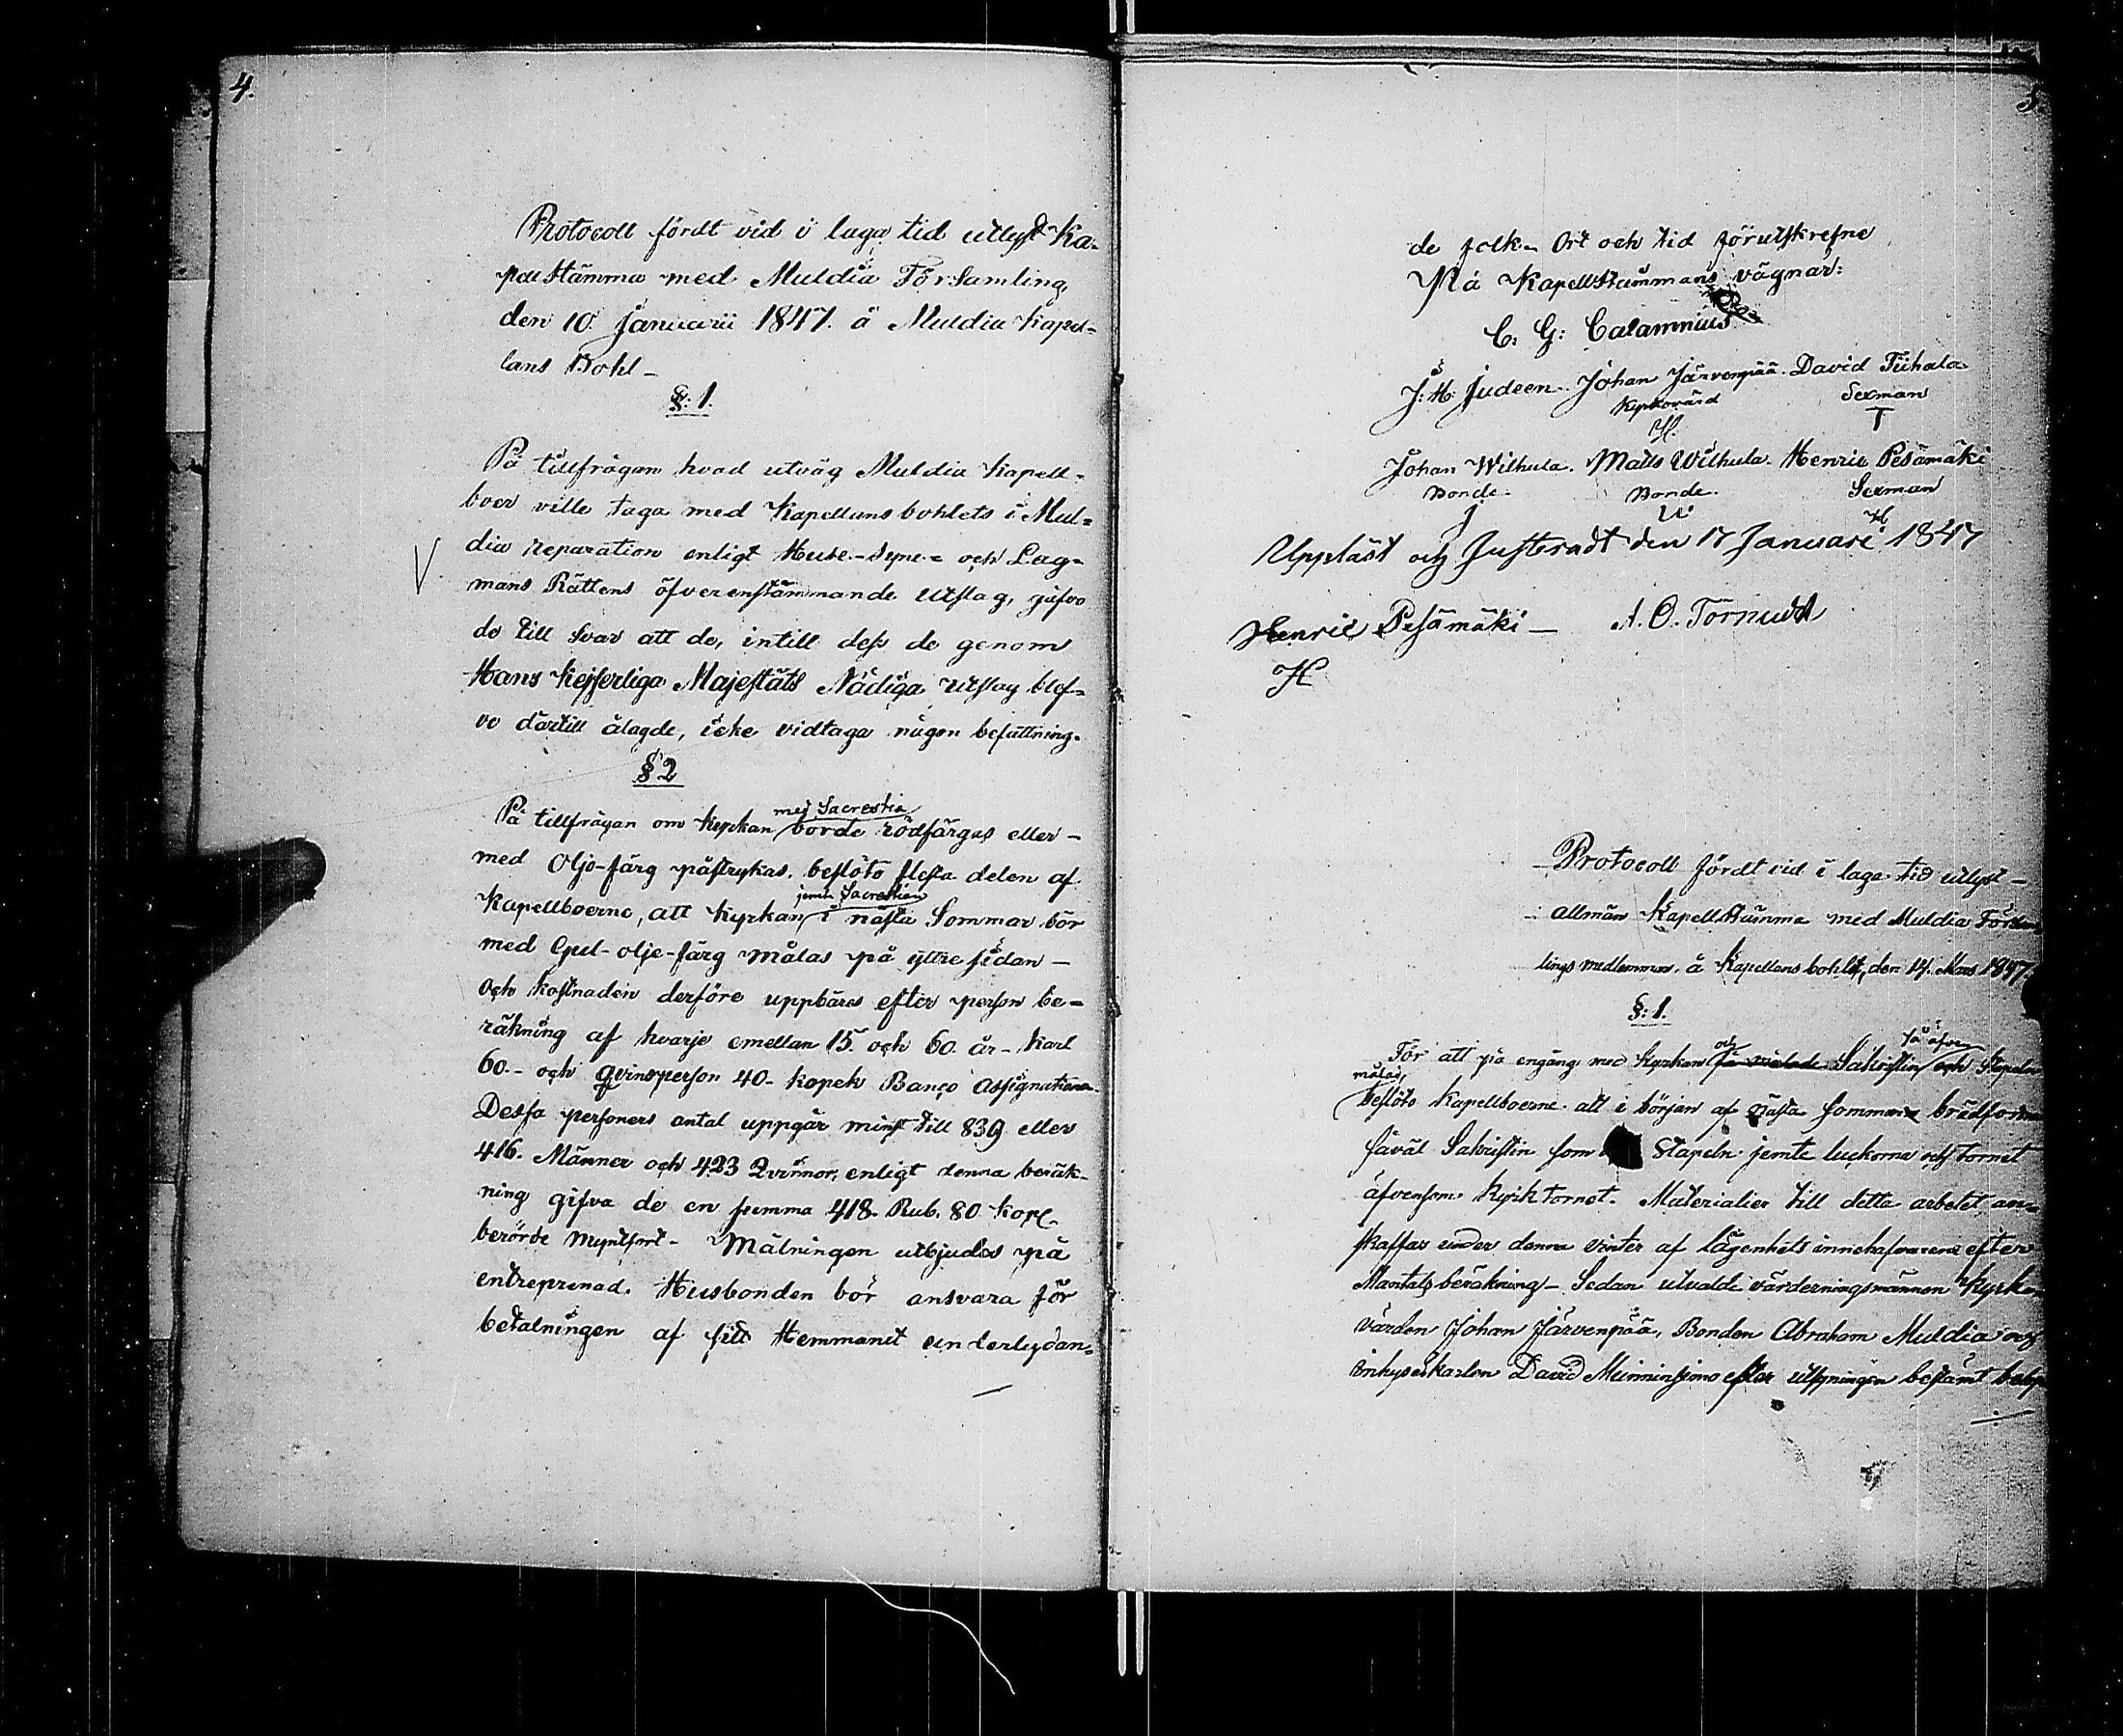 4.
Protocoll fördt vid i laga tid utlyst Ka-
pellstämma med Muldia Församling,
den 10. Januarii 1847. å Muldia Kapel-
lans Bohl -
§: 1.
På tillfrågan hvad utväg Muldia Kapell-
boer ville taga med Kapellansbohlets i Mul=
dia reparation enligt Huse-Syne= och Lag-
V
mans Rättens öfverenstämmande Utslag, gåfvo
de till svar att de, intill dess de genom
Hans Kejserliga Majestäts Nådiga Utslag blef-
vo dartill ålagde, icke vidtaga någon befattning.
§ 2
med Sacrestia
På tillfrågan om Kyrkan borde rödfärgas eller -
med Oljo-färg påstrykas. beslöto flesta delen af
jemte Sacrestian
Kapellboerne, att Kyrkan i nästa Sommar bör
med Gul-olje-färg målas på yttre sidan -
och kostnaden derföre uppbäras efter person be-
räkning af hvarje emellan 15. och 60. år - Karl
60.- och qvinsperson 40- kopek Banco Assignationer
Dessa personers antal uppgår minst till 839 eller
416. Männer och 423 Qvinnor, enligt denna beräk-
ning gifva de en summa 418. Rub. 80 Kopk.
berörde myntsort - Målningen utbjudes på
entreprenad. Husbonden bör ansvara för
betalningen af sitt Hemmanet underlydan=
5
de folk - Ort och tid förutskrefne
På Kapellstämmans vägnar:
C. G: Calamnius
J: H: Judeen. Johan Järvenpää. David Tiihala
Kyrkovärd Sexman
T
Johan Wilhula. Matts Wilhula. Henric Pesämäki
Bonde. Bonde. Sexman
Uppläst och Justeradt den 17 Januari 1847
Henric Pesämäki - A. O. Törnudd
H
Protocoll fördt vid i laga tid utlyst -
allmän Kapellstämma med Muldia Försam
lings medlemmar, å Kapellans bohlet, den 14. Mars 1847.
§: 1.
och så äfven
För att på engång med Kyrkan få målade Sakristin och Stapeln
målas,
beslöto Kapellboerne att i början af nästa sommar brädfodra
såväl Sakristin som Stapeln jemte luckorna och tornet
äfvensom Kyrktornet. Materialier till detta arbetet an-
skaffas under denna vinter af lägenhets innehafvarene efter
Mantals beräkning - Sedan utvalde värderingsmännen Kyrko
värden Johan Järvenpää, Bonden Abraham Muldia och
inhyseskarlen David efter utsyningen bestämt